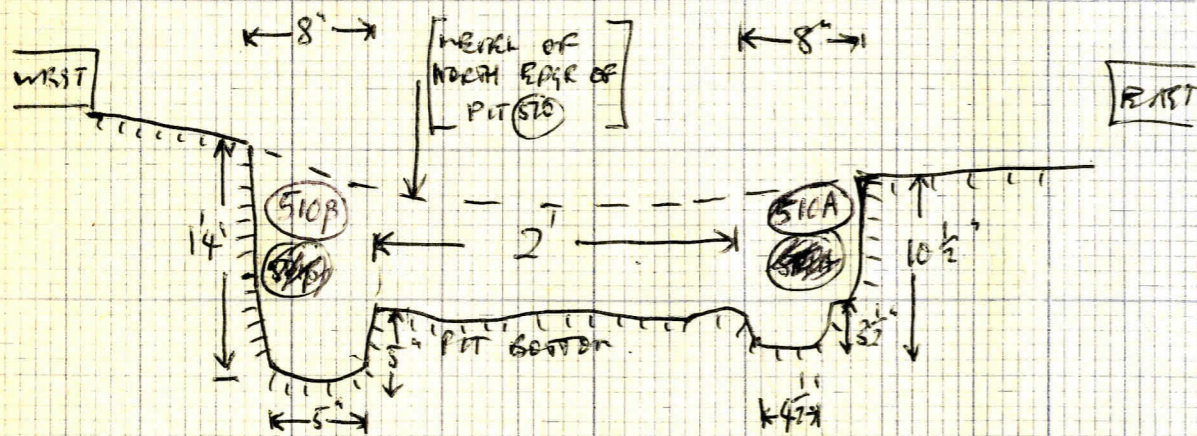 8"
8"
WEST
[LEVEL OF
NORTH EDGE OF
PIT 510]
EAST
510B
510A
14"
2'
10½"
5"
PIT BOTTOM
3½"
5"
4½"